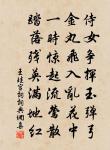 侍女争挥玉弹弓
金丸飞入乱花中
一时惊起流莺散
踏落残英满地红
王珪宫词词典网集